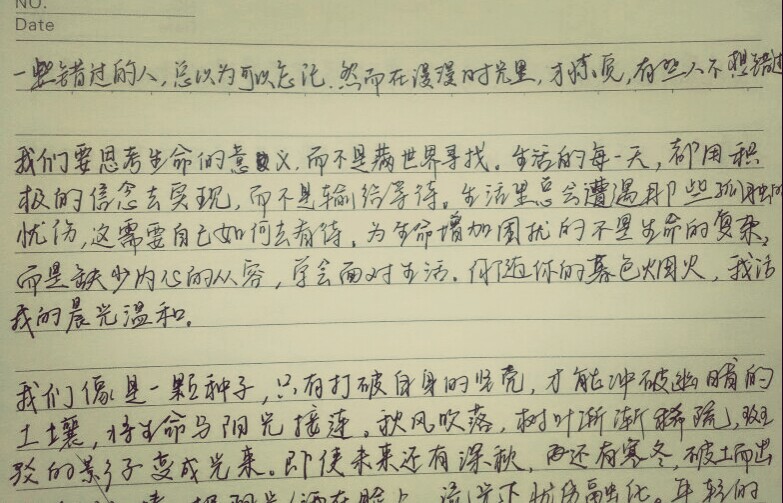 NO.
Date
一些错过的人,总以为可以忘记.然而在漫漫时光里,才惊觉,有些人不想错过
我们要思考生命的意义,而不是满世界寻找。生活的每一天,都用积
极的信念去实现,而不是输给等待。生活里总会遭遇那些孤独
忧伤,这需要自己如何去看待。为生命增加困扰的不是生命的复杂,
而是缺少内心的从容,学会面对生活。你的暮色烟火,我活
我的晨光温和。
我们像是一颗种子,只有打破自身的坚壳,才能冲破幽暗的
土壤,将生命与阳光接连。秋风吹落,树叶渐渐稀疏,斑
驳的影子变成光来。即使未来还有深秋,再还有寒冬,破土而出